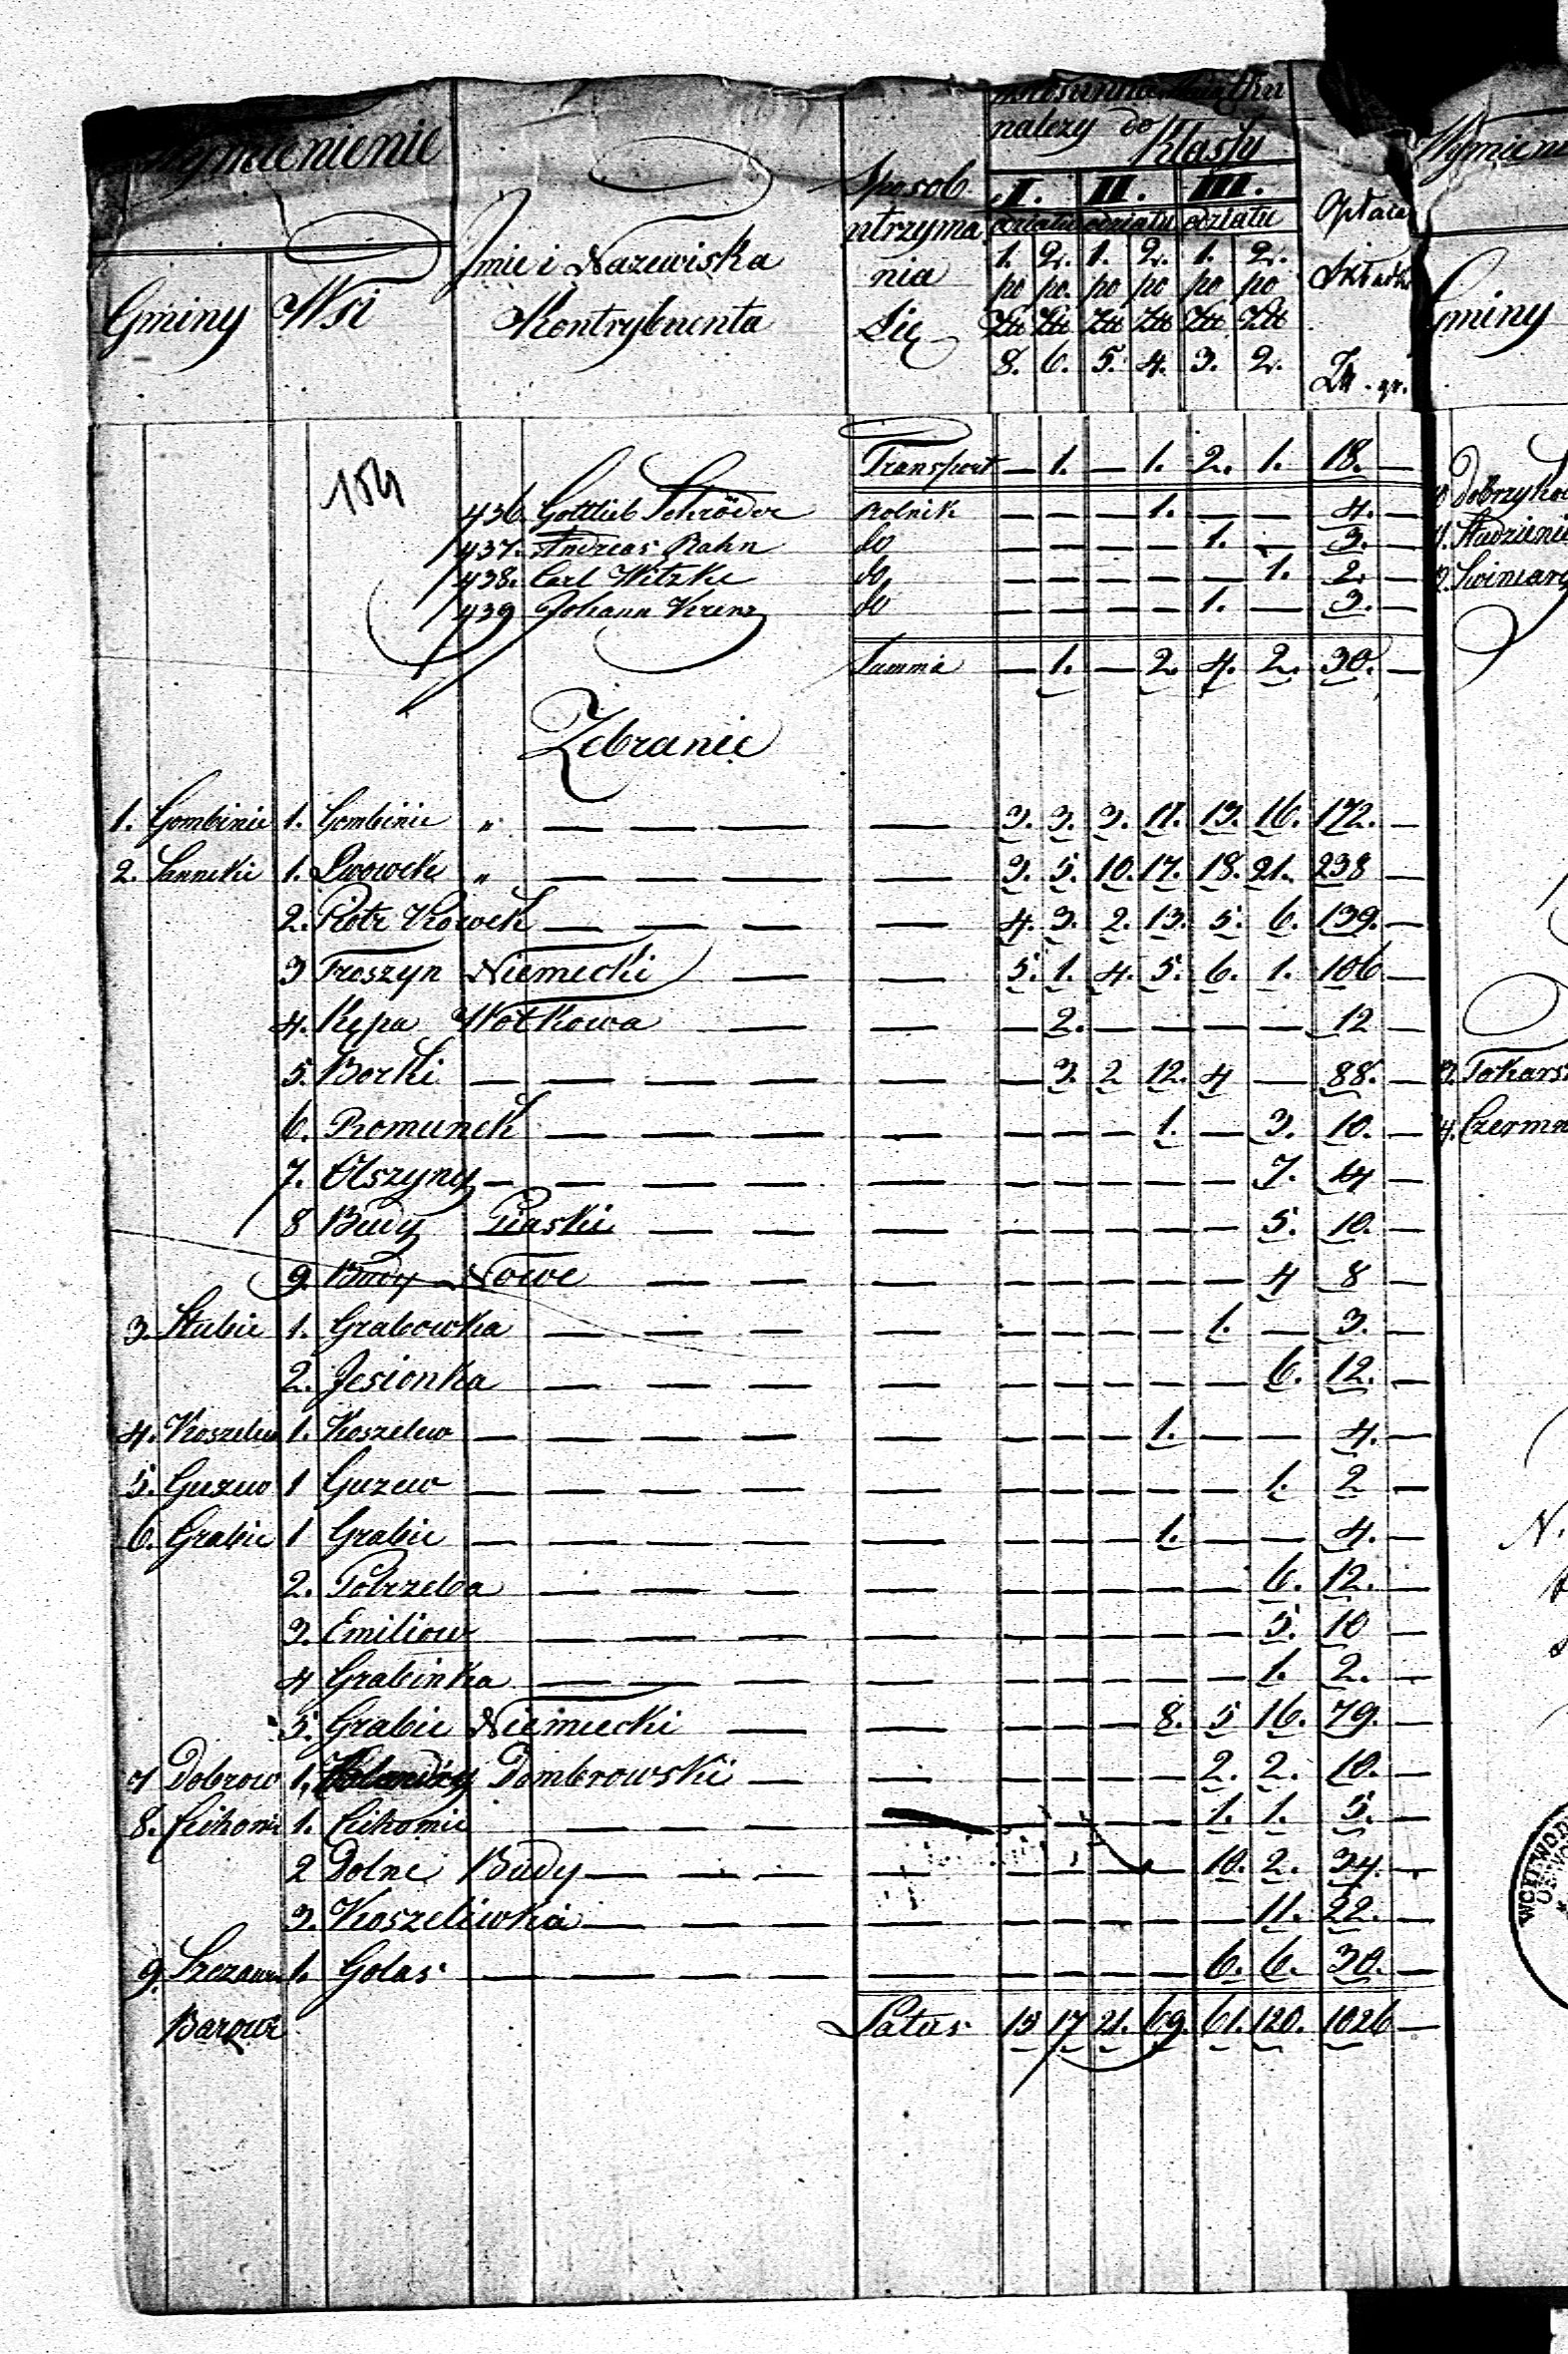 Wymienienie
należy do Klasy
Sposob utrzymania Się
I. II. III.
oddziału oddziału oddziału
1. 2. 1. 2. 1. 2.
po po. po po po po
Złł Złł Złł Złł Złł Złł
8. 6. 5. 4. 3. 2.
Opłaca Składki
Zł. gr.
Gminy Wsi
Jmie i Nazewiska Kontrybuenta
154
Transport — 1. — 1. 2. 1. 18. —
436. Gottlieb Schröder Rolnik — — — 1. — — 4. —
437. Andreas Rahn do — — — — 1. — 3. —
438. Carl Witzke do — — — — — 1. 2. —
439 Johann Krenz do — — — — 1. — 3. —
Summa — 1. — 2. 4. 2. 30. —
Zebranie
1. Gombinie 1. Gombinie " — — — — 3. 3. 3. 11. 13. 16. 172. —
2. Sannikie 1. Lwowek " — — — — 3. 5. 10. 17. 18. 21. 238 —
2. Piotr Kowek — — — — 4. 3. 2. 13. 5. 6. 139. —
3 Troszyn Niemecki — — 5. 1. 4. 5. 6. 1. 106 —
4. Kępa Wołkowa — — — — 2. — — — — 12 —
5. Borki — — — — — — 3. 2 12. 4 — 88. —
6. Romunek — — — — — — — 1. — 3. 10. —
7. Olszyny — — — — — — — — — — 7. 14 —
8 Budy Piaski — — — — — — — — 5. 10. —
9. Budy Nowe — — — — — — — — 4 8 —
3. Słubie 1. Grabowka — — — — — — — — 1. — 3. —
2. Jesionka — — — — — — — — — 6. 12. —
4. Koszelew 1. Koszelew — — — — — — — — 1. — — 4. —
5. Guzew 1 Guzew — — — — — — — — — — 1. 2 —
6. Grabie 1 Grabie — — — — — — — — 1. — — 4. —
2. Potrzeba — — — — — — — — — 6. 12. —
3. Emiliow — — — — — — — — — 5. 10 —
4 Grabinka — — — — — — — — — 1. 2. —
5. Grabie Niemiecki — — — — — 8. 5 16. 79. —
7 Dobrow 1. Dombrowski — — — — — — 2. 2. 10. —
8. 1. — — — — — — — — 1. 1. 5. —
2 Dolne Budy — — — — — — — — 10. 2. 34. —
3. Koszelewka — — — — — — — — — 11. 22. —
9. 1. Golas — — — — — — — — — 6. 6. 30. —
Latus 15 17 21. 69. 61. 120. 1026 —
Gminy
Czermn